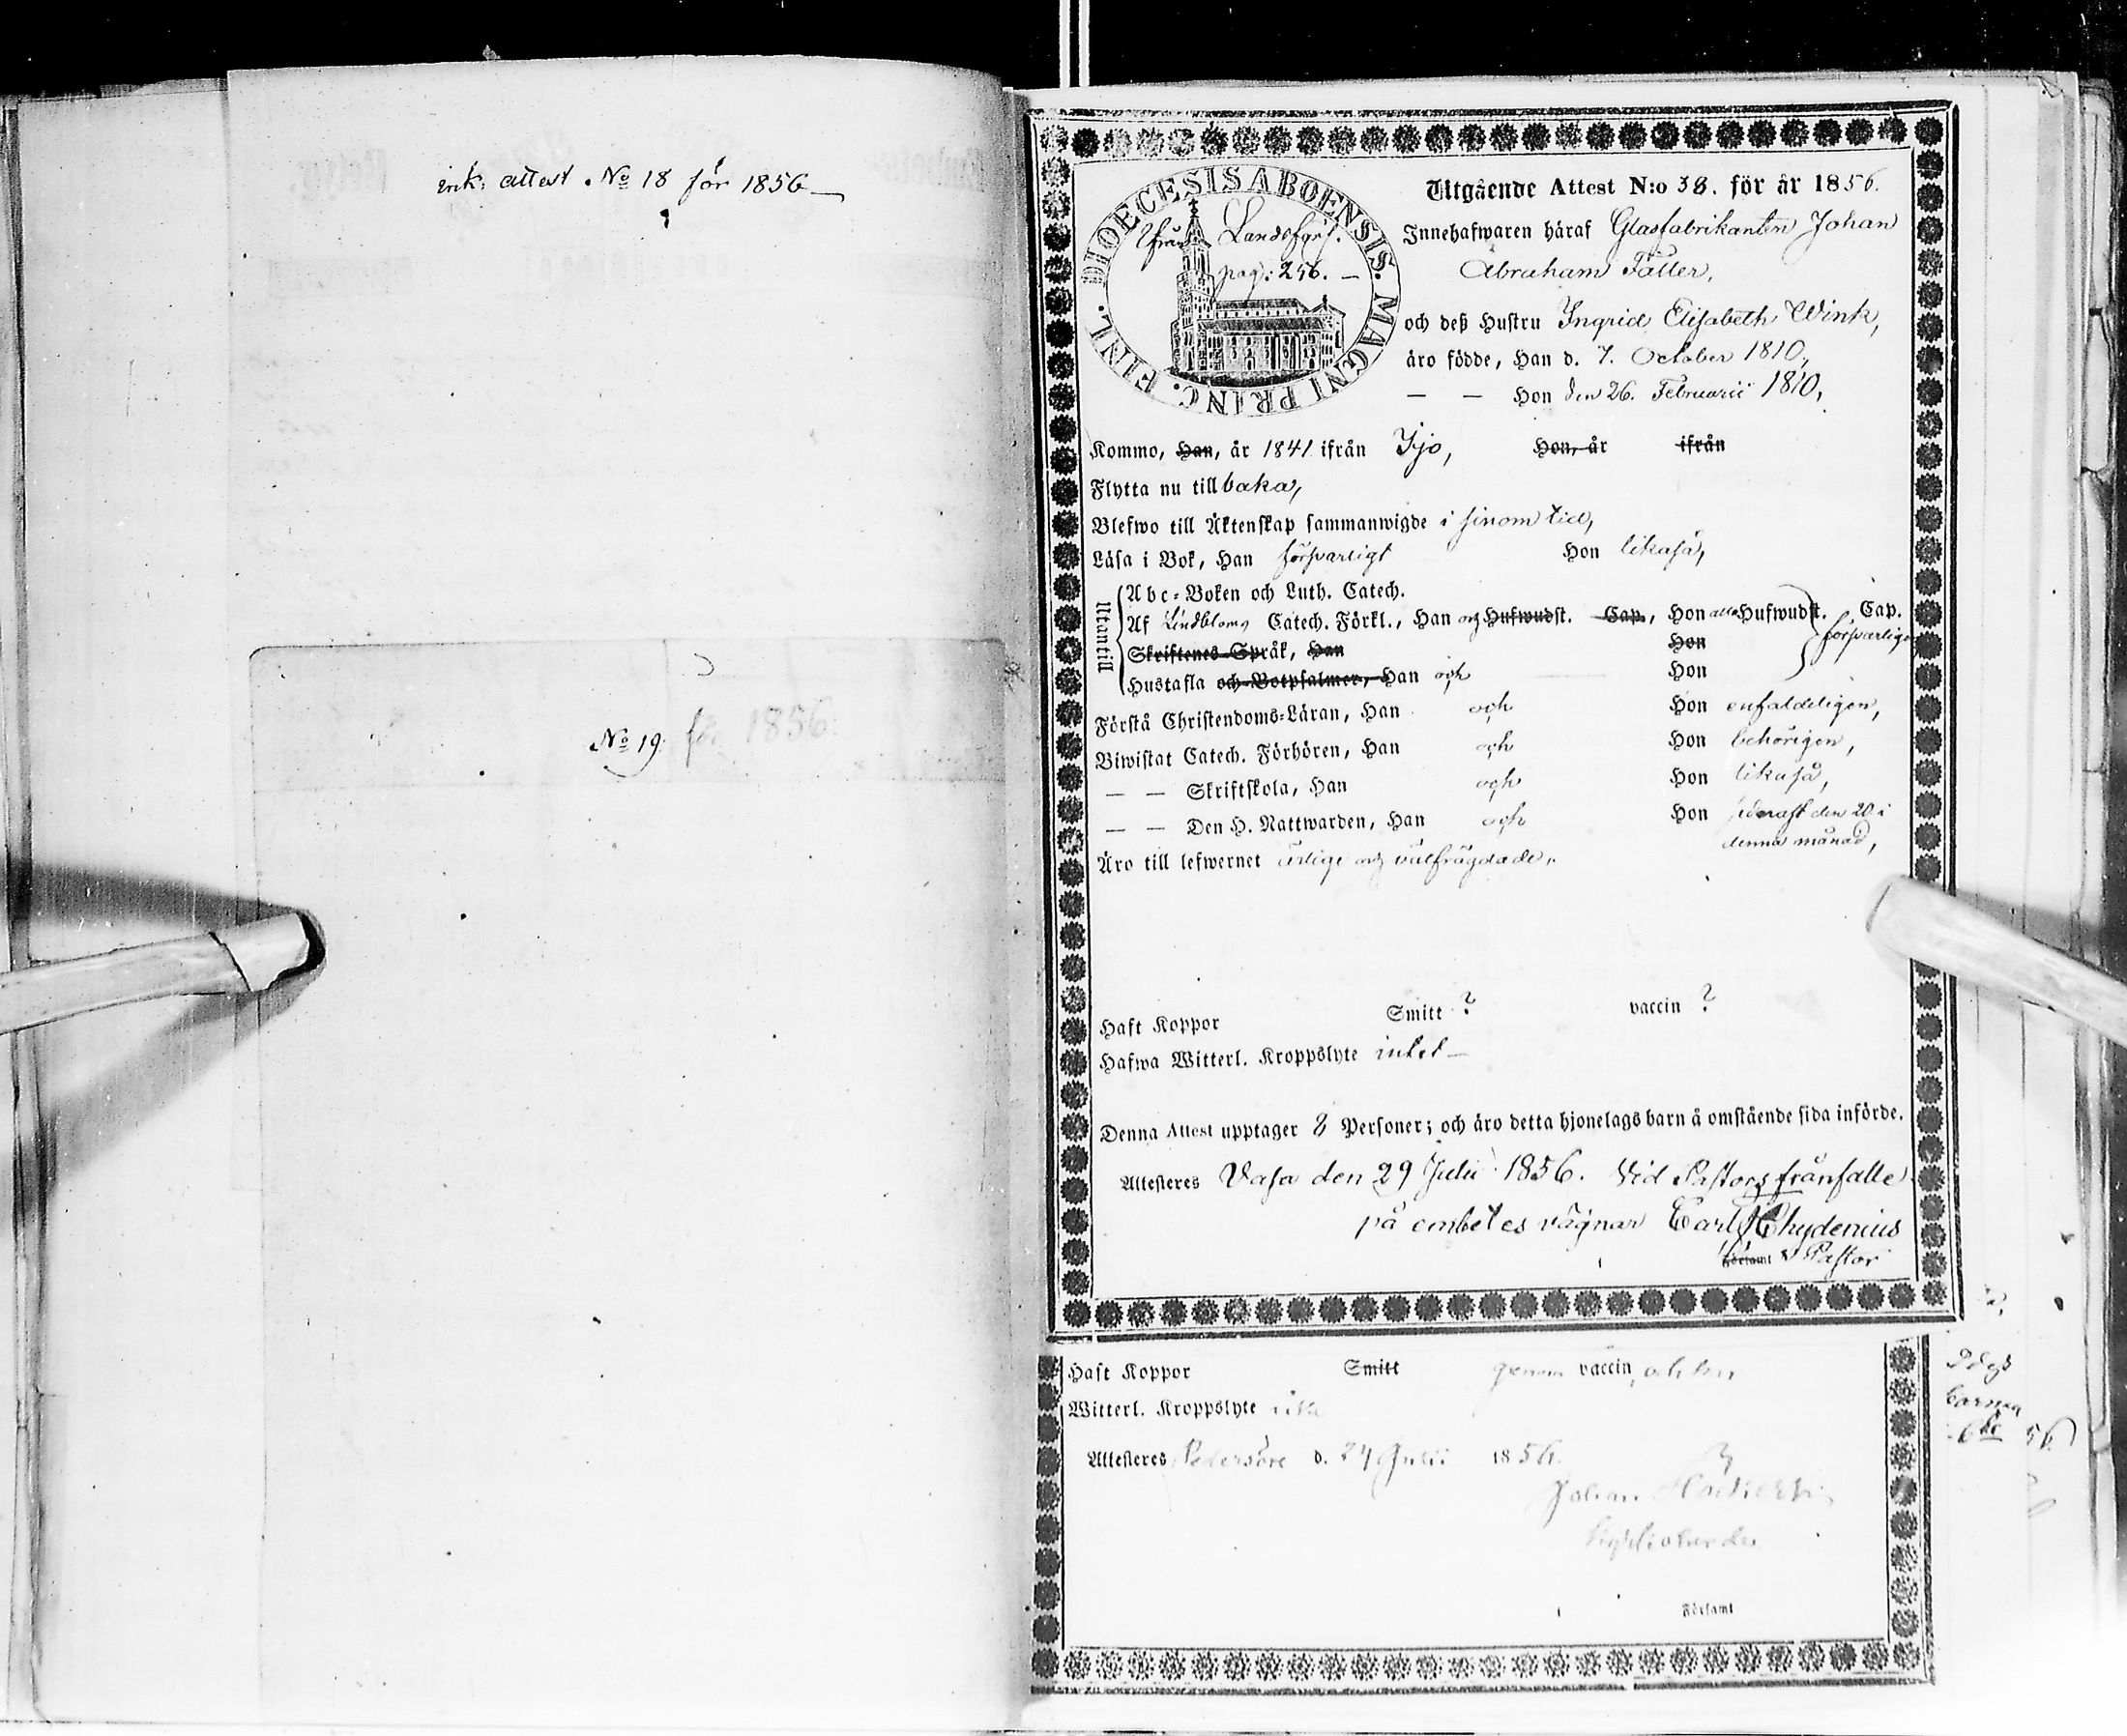 ink. attest. No 18 för 1856
No 19. för 1856.
DIOECESIS ABOENSIS. MAGNI PRINC. FINL.
från Landsförs.
pag: 256. —
Utgående Attest N:o 38. för år 1856.
Innehafwaren häraf Glasfabrikanten Johan
Abraham Fäller,
och deß Hustru Ingrid Elisabeth Wink,
äro födde, Han d. 7. October 1810,
— — Hon den 26. Februarii 1810,
Kommo, Han, år 1841 ifrån Ijo, Hon, år ifrån
Flytta nu tillbaka,
Blefwo till Äktenskap sammanwigde i sinom tid,
Läsa i Bok, Han försvarligt Hon likaså,
Utantill
Abc-Boken och Luth. Catech.
Af Lindbloms Catech. Förkl., Han och Hufwudst. Cap., Hon alla Hufwudst. Cap.
Skriftenes Språk, Han Hon försvarligen
Hustafla och Botpsalmer, Han och Hon
Förstå Christendoms-Läran, Han och Hon enfaldeligen,
Biwistat Catech. Förhören, Han och Hon behörigen,
— — Skriftskola, Han och Hon likaså,
— — Den H. Nattwarden, Han och Hon sednast den 20 i
denna månad,
Äro till lefwernet ärlige och välfrägdade.
Haft Koppor Smitt ? vaccin ?
Hafwa Witterl. Kroppslyte intet —
Denna Attest upptager 8 Personer; och äro detta hjonelags barn å omstående sida införde.
Attesteres Vasa den 29 Julii 1856. Vid Pastors frånfälle
på embetes vägnar Carl Chydenius
Församl v Pastor
Haft Koppor Smitt genom vaccin,
Witterl. Kroppslyte icke
Attesteres Pedersöre d. 24 Julii 1856.
Johan
Församl